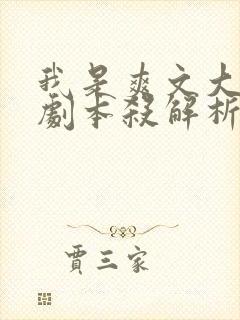 我是爽文大
劇本殺解析
賈三家